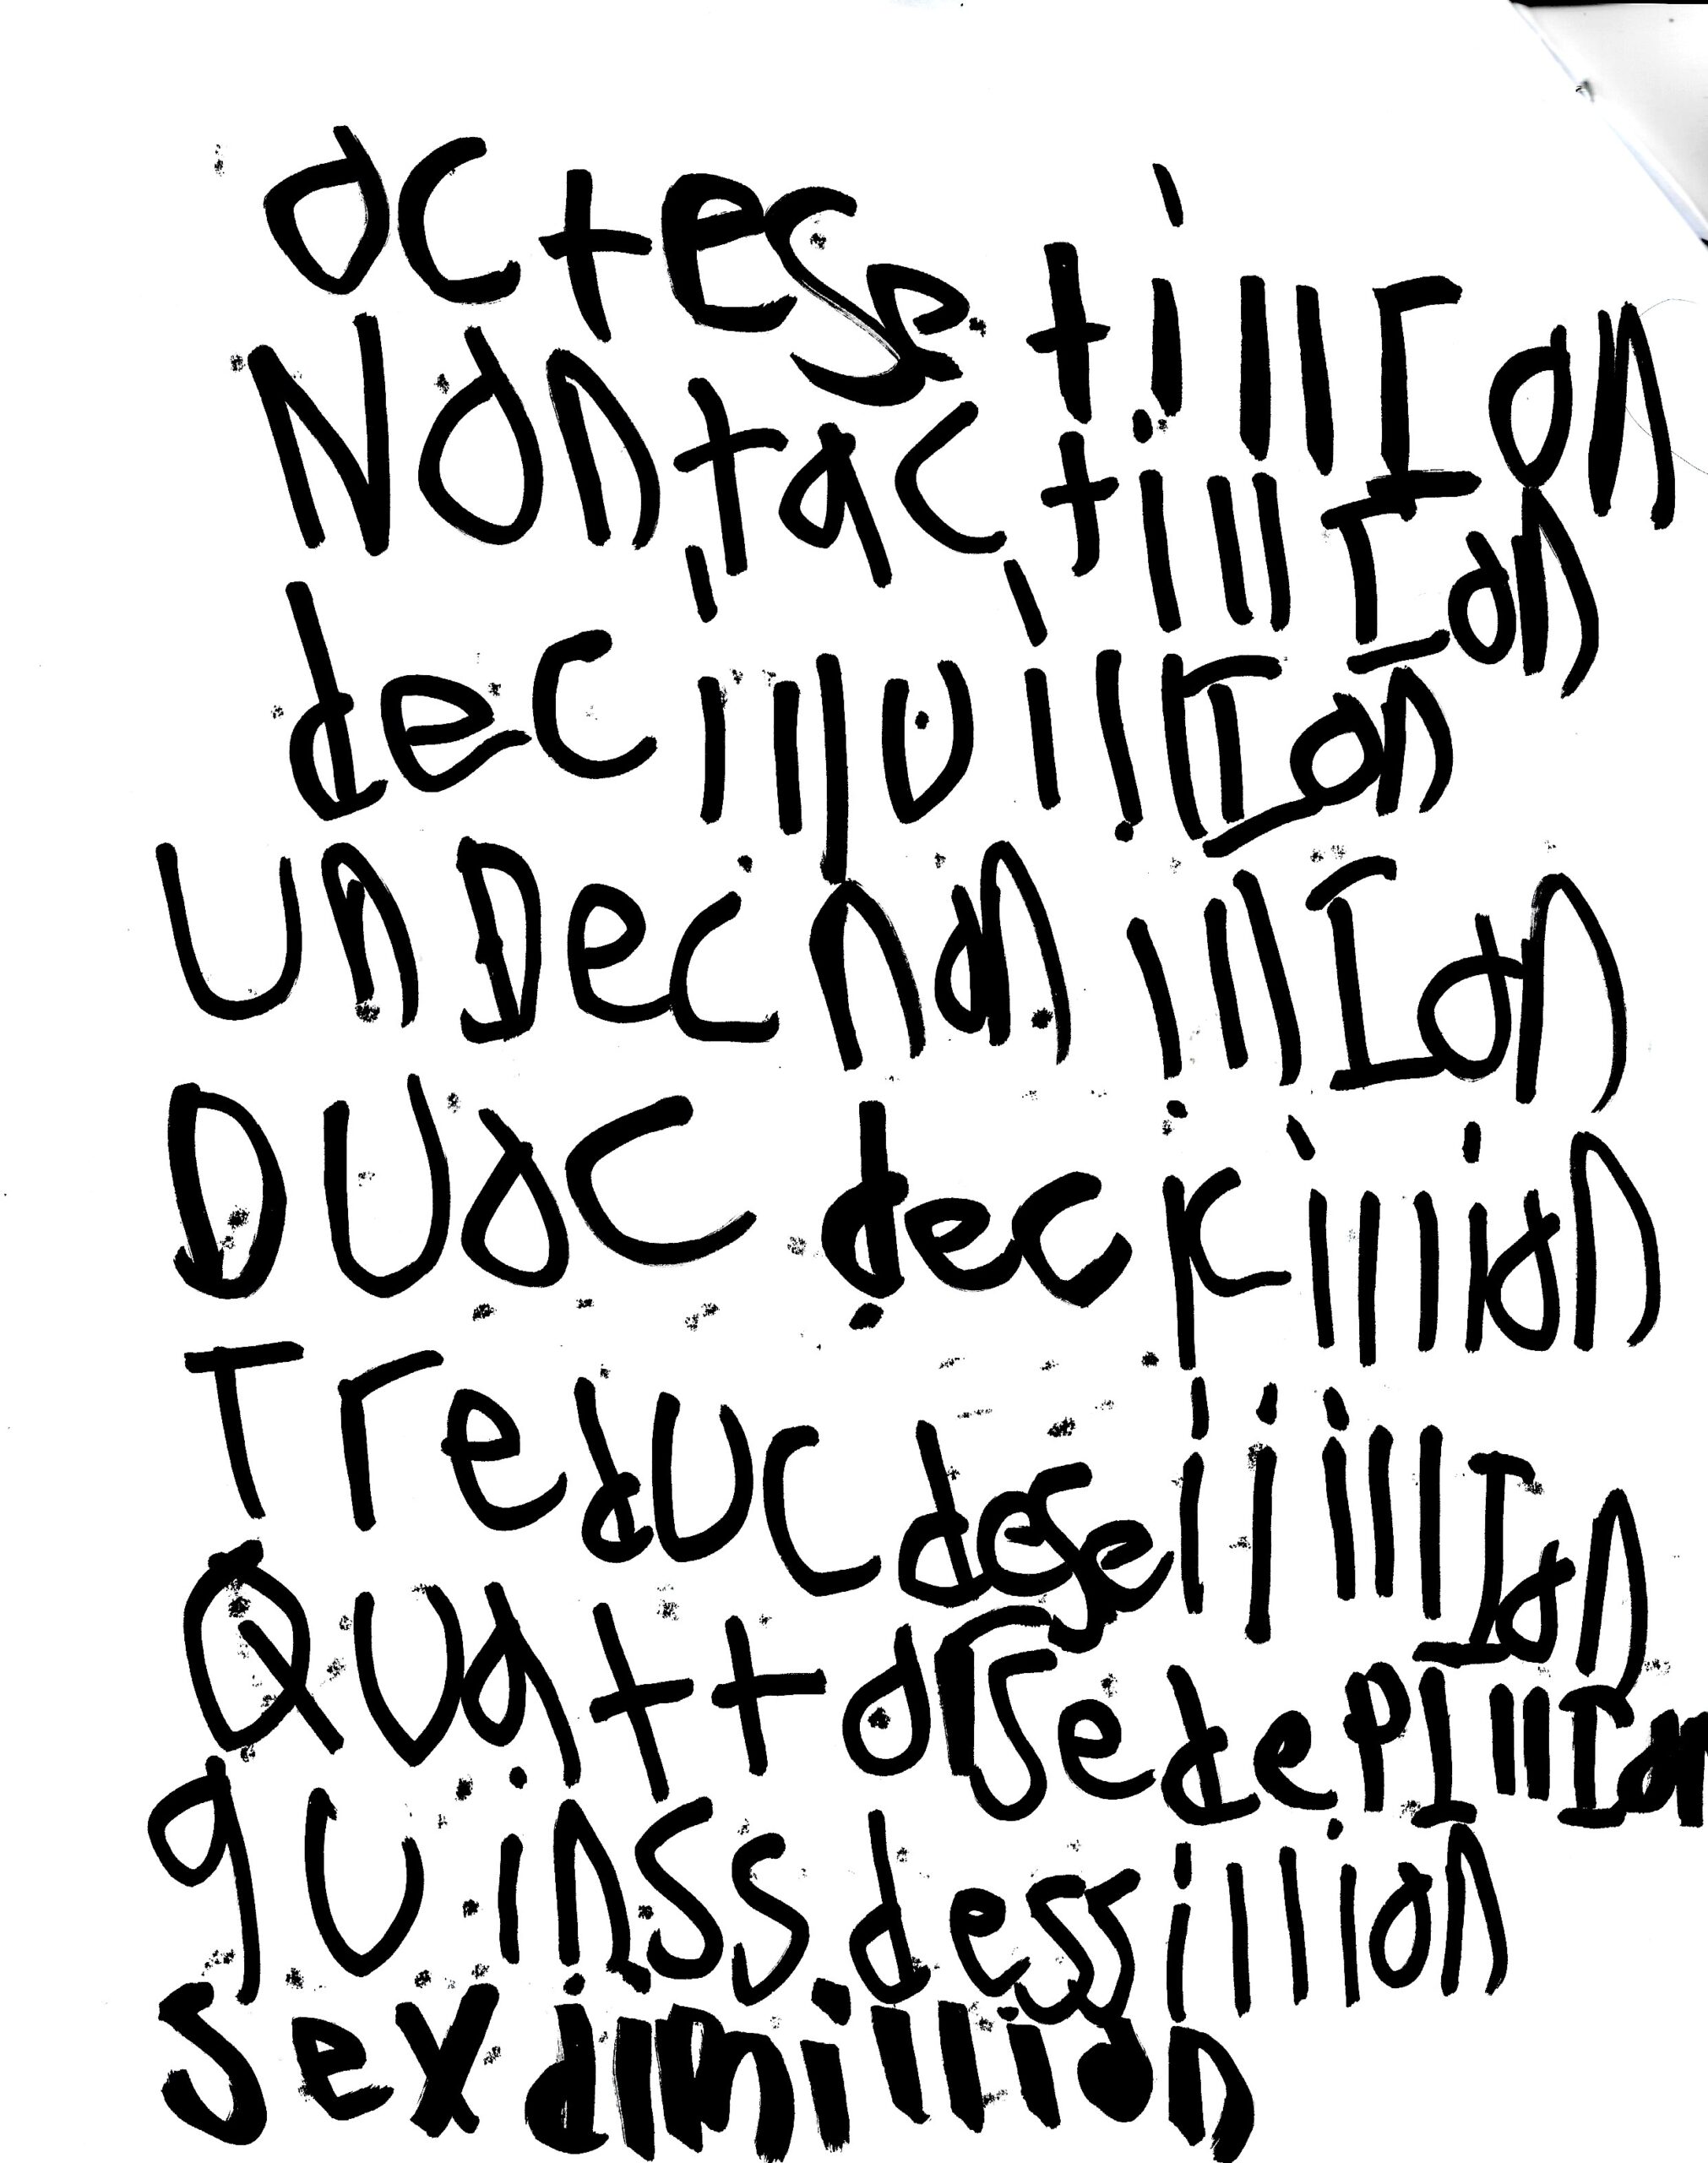 octese tillIon
Nontac tillIon
decillvillIon
UnDecnonillIon
DUoc deckillion
TreducdeseiiillIon
QuattorsedepIllIon
quinssdessillion
Sexdimillion